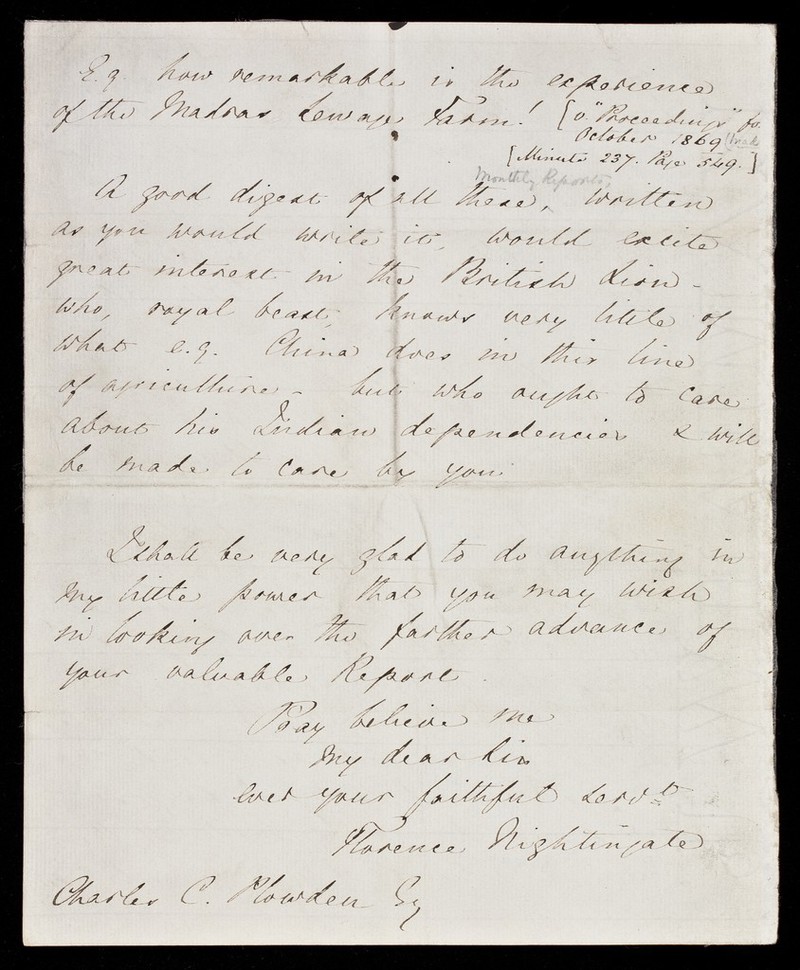 E.g. how remarkable is the experience
of the Madras Sewage Farm! [v. "Proceedings" for
October 1869
[Minute 237. Page 549.]
Monthly Reports,
A good digest of all these, written
as you would write it, would excite
great interest in the British Lion -
who, royal beast, knows very little of
what e.g. China does in this line
of agriculture - but who ought to care
about his Indian dependencies & will
be made to care by you.
I shall be very glad to do anything in
my little power that you may wish
in looking over the farther advance of
your valuable Report.
Pray believe me
My dear Sir
ever your faithful servt
Florence Nightingale
Charles C. Plowden Esq